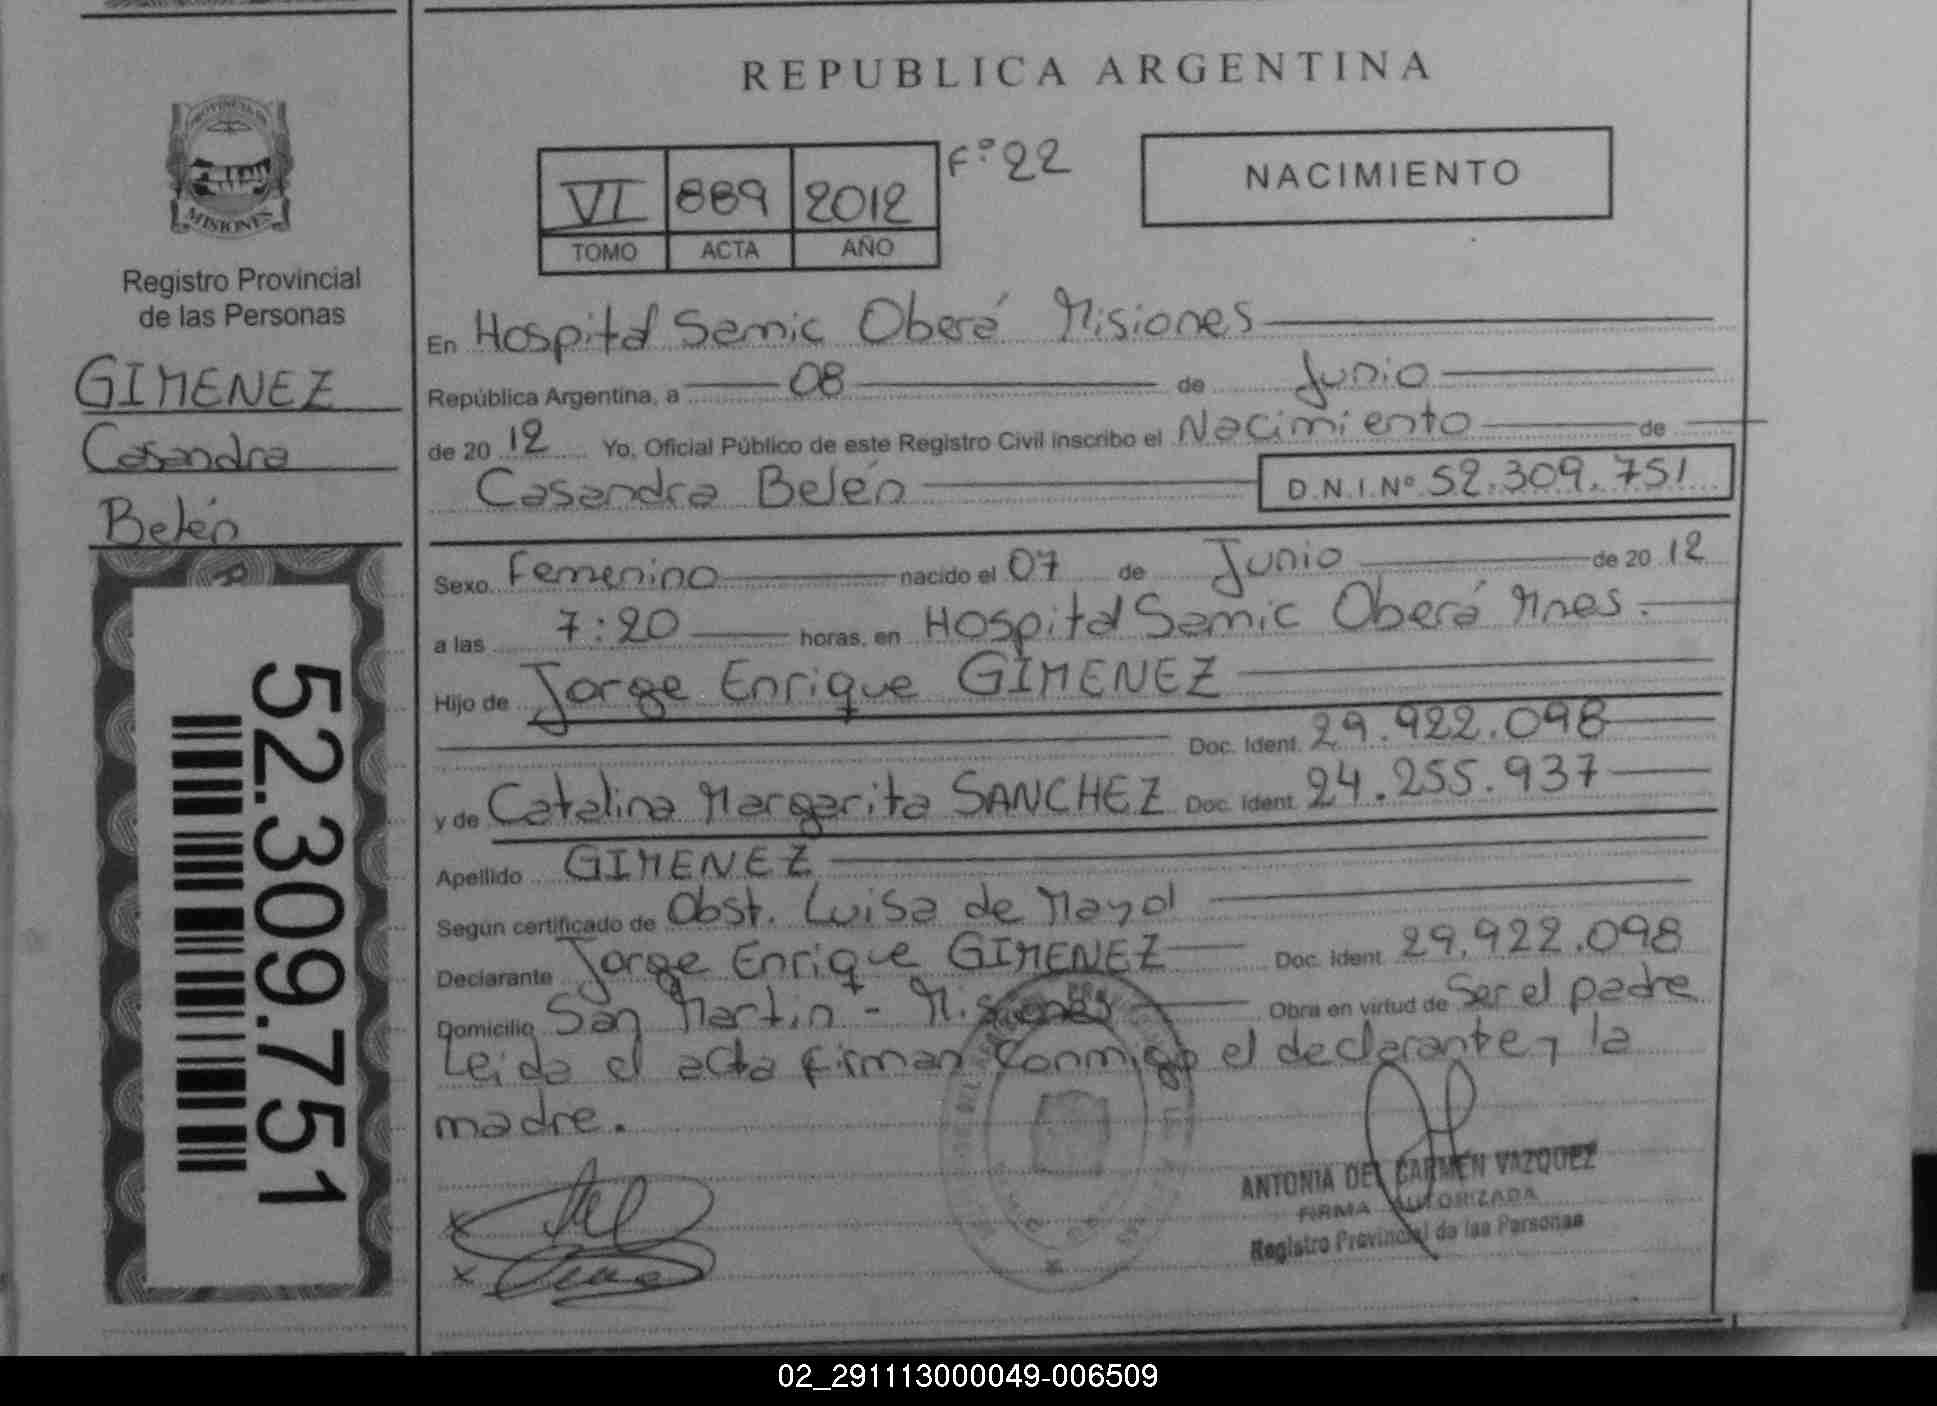 REPUBLICA ARGENTINA
PROVINCIA DE
MISIONES
Registro Provincial
de las Personas
GIMENEZ
Casandra
Belén
52.309.751
VI 889 2012 Fº 22
TOMO ACTA AÑO
NACIMIENTO
En Hospital Samic Oberá Misiones
República Argentina, a 08 de Junio
de 20 12 Yo, Oficial Público de este Registro Civil inscribo el Nacimiento de
Casandra Belén D.N.I.Nº 52.309.751
Sexo Femenino nacido el 07 de Junio de 20 12
a las 7:20 horas, en Hospital Samic Oberá Mnes.
Hijo de Jorge Enrique GIMENEZ
Doc. Ident. 29.922.098
y de Catalina Margarita SANCHEZ Doc. Ident. 24.255.937
Apellido GIMENEZ
Según certificado de Obst. Luisa de Mayol
Declarante Jorge Enrique GIMENEZ Doc. Ident. 29.922.098
Domicilio San Martin - Misiones Obra en virtud de Ser el padre
Leida el acta firman conmigo el declarante y la
madre.
ANTONIA DEL CARMEN VAZQUEZ
FIRMA AUTORIZADA
Registro Provincial de las Personas
02_291113000049-006509